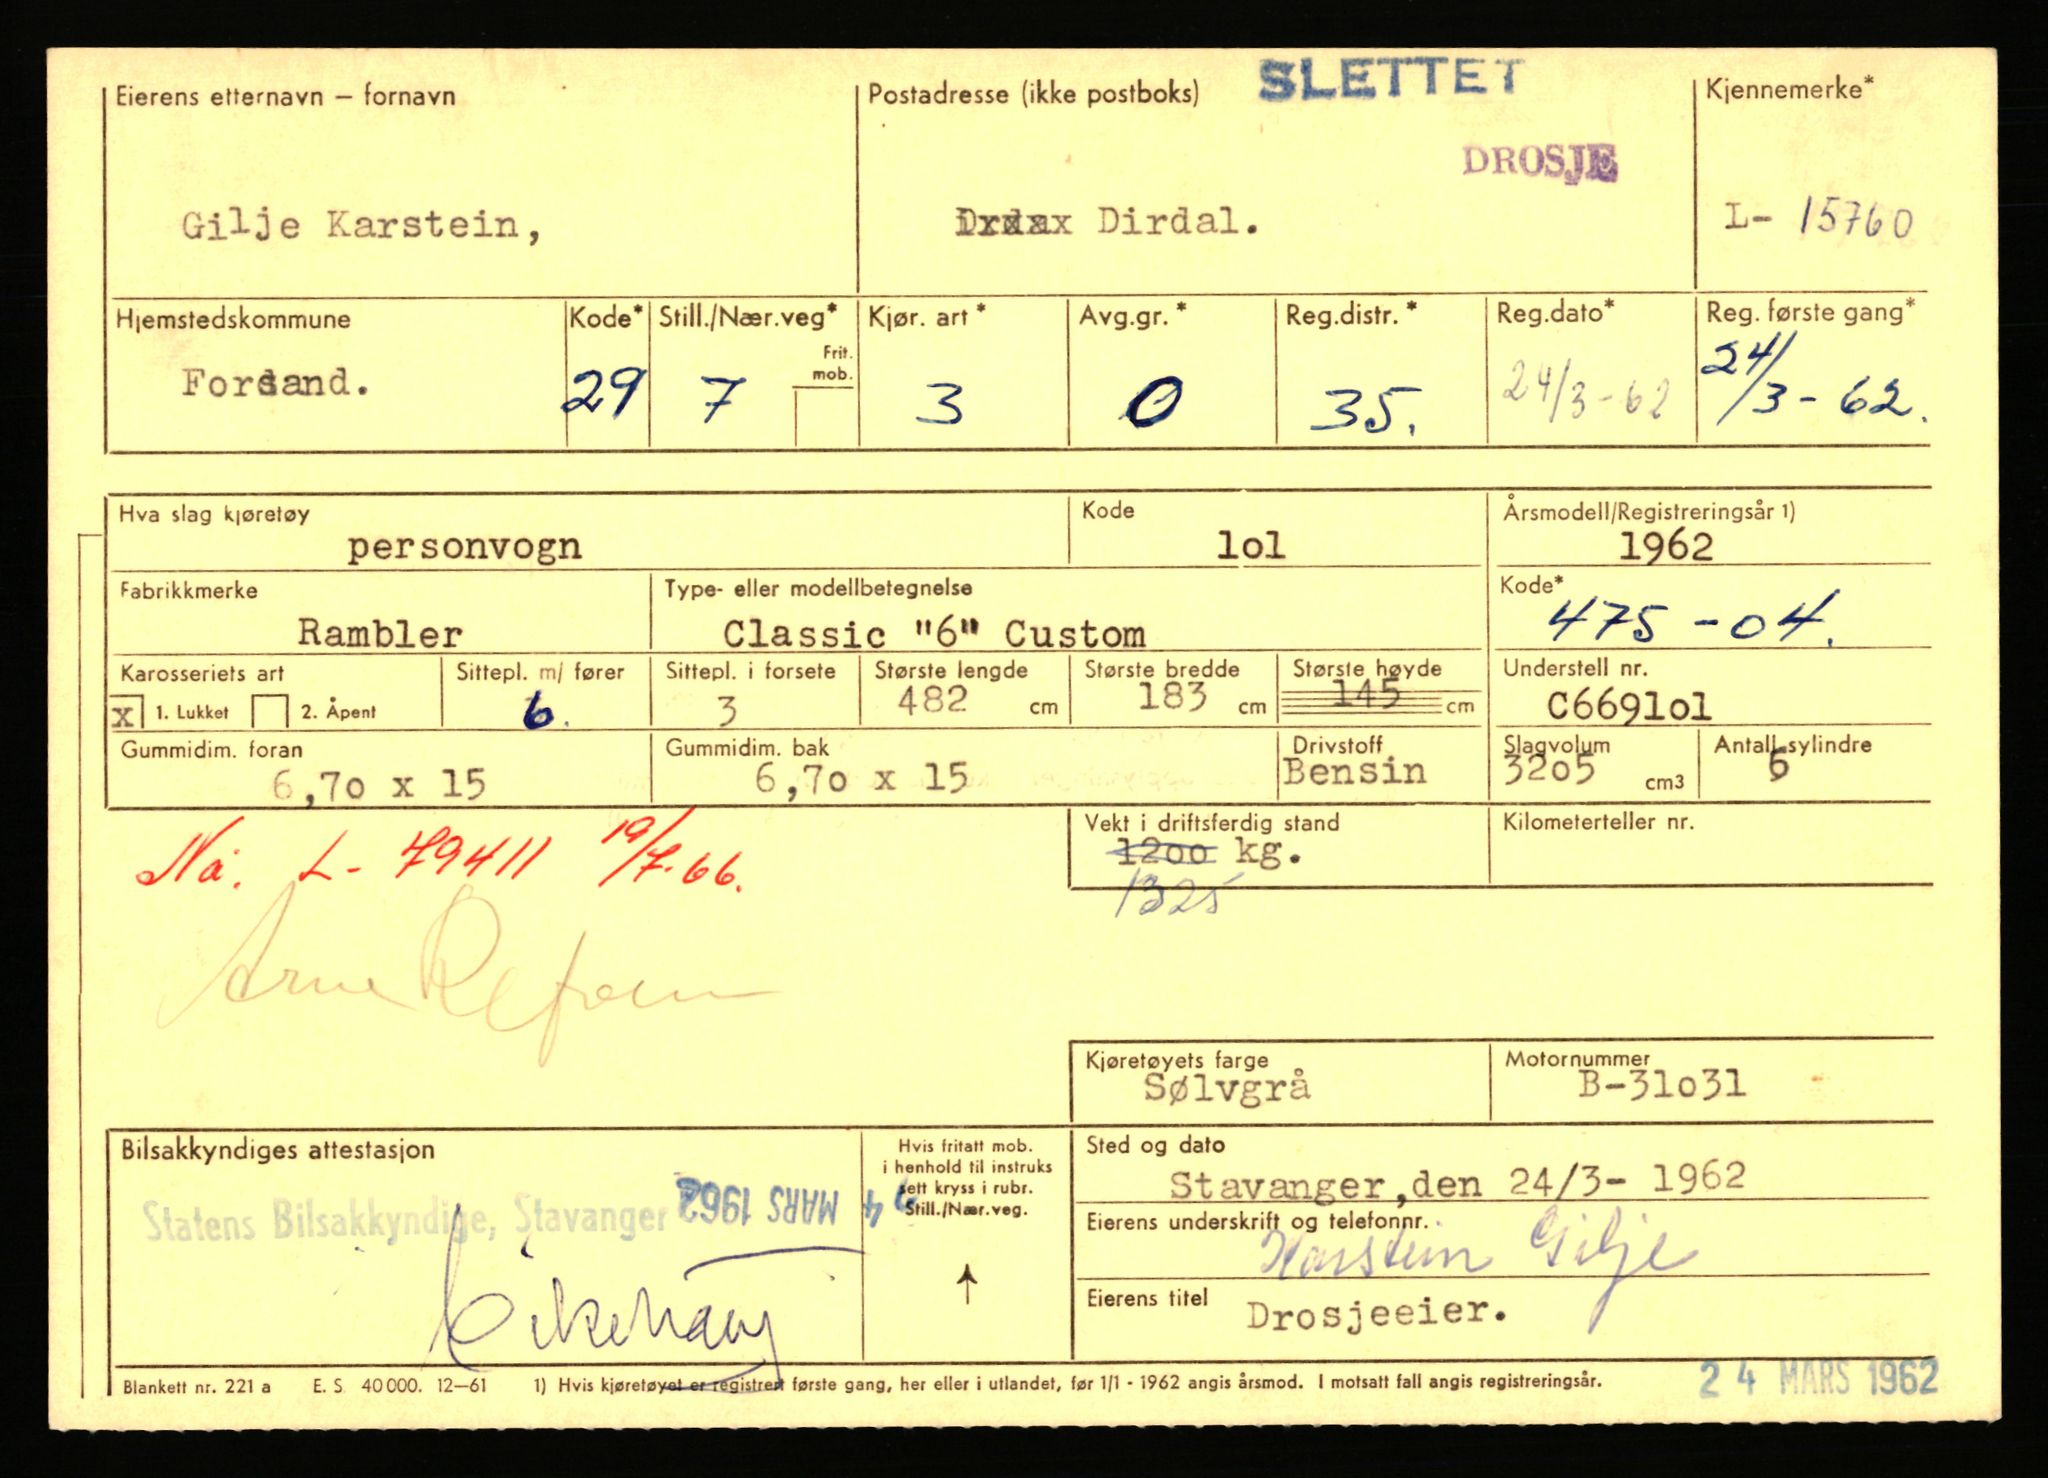 SLETTET
Eierens etternavn – fornavn
Postadresse (ikke postboks)
Kjennemerke*
DROSJE
Gilje Karstein,
Dirdal.
L- 15760
Hjemstedskommune
Kode*
Still./Nær.veg*
Frit. mob.
Kjør. art*
Avg.gr.*
Reg.distr.*
Reg.dato*
Reg. første gang*
Forsand.
29
7
3
0
35.
24/3-62
24/3-62.
Hva slag kjøretøy
Kode
Årsmodell/Registreringsår 1)
personvogn
lol
1962
Fabrikkmerke
Type- eller modellbetegnelse
Kode*
Rambler
Classic "6" Custom
475-04.
Karosseriets art
Sittepl. m/ fører
Sittepl. i forsete
Største lengde
Største bredde
Største høyde
Understell nr.
x 1. Lukket
2. Åpent
6.
3
482 cm
183 cm
145 cm
C669lol
Gummidim. foran
Gummidim. bak
Drivstoff
Slagvolum
Antall sylindre
6,70 x 15
6,70 x 15
Bensin
3205 cm3
6
Nå. L-79411 19/7-66.
Vekt i driftsferdig stand
Kilometerteller nr.
1200 kg.
1325
Arne
Kjøretøyets farge
Motornummer
Sølvgrå
B-31031
Bilsakkyndiges attestasjon
Hvis fritatt mob.
i henhold til instruks
sett kryss i rubr.
Still./Nær.veg.
Sted og dato
Stavanger,den 24/3- 1962
Statens Bilsakkyndige, Stavanger
24 MARS 1962
Eierens underskrift og telefonnr.
Karstein Gilje
Eierens titel
Drosjeeier.
Blankett nr. 221 a E. S. 40 000. 12–61 1) Hvis kjøretøyet er registrert første gang, her eller i utlandet, før 1/1 - 1962 angis årsmod. I motsatt fall angis registreringsår.
24 MARS 1962